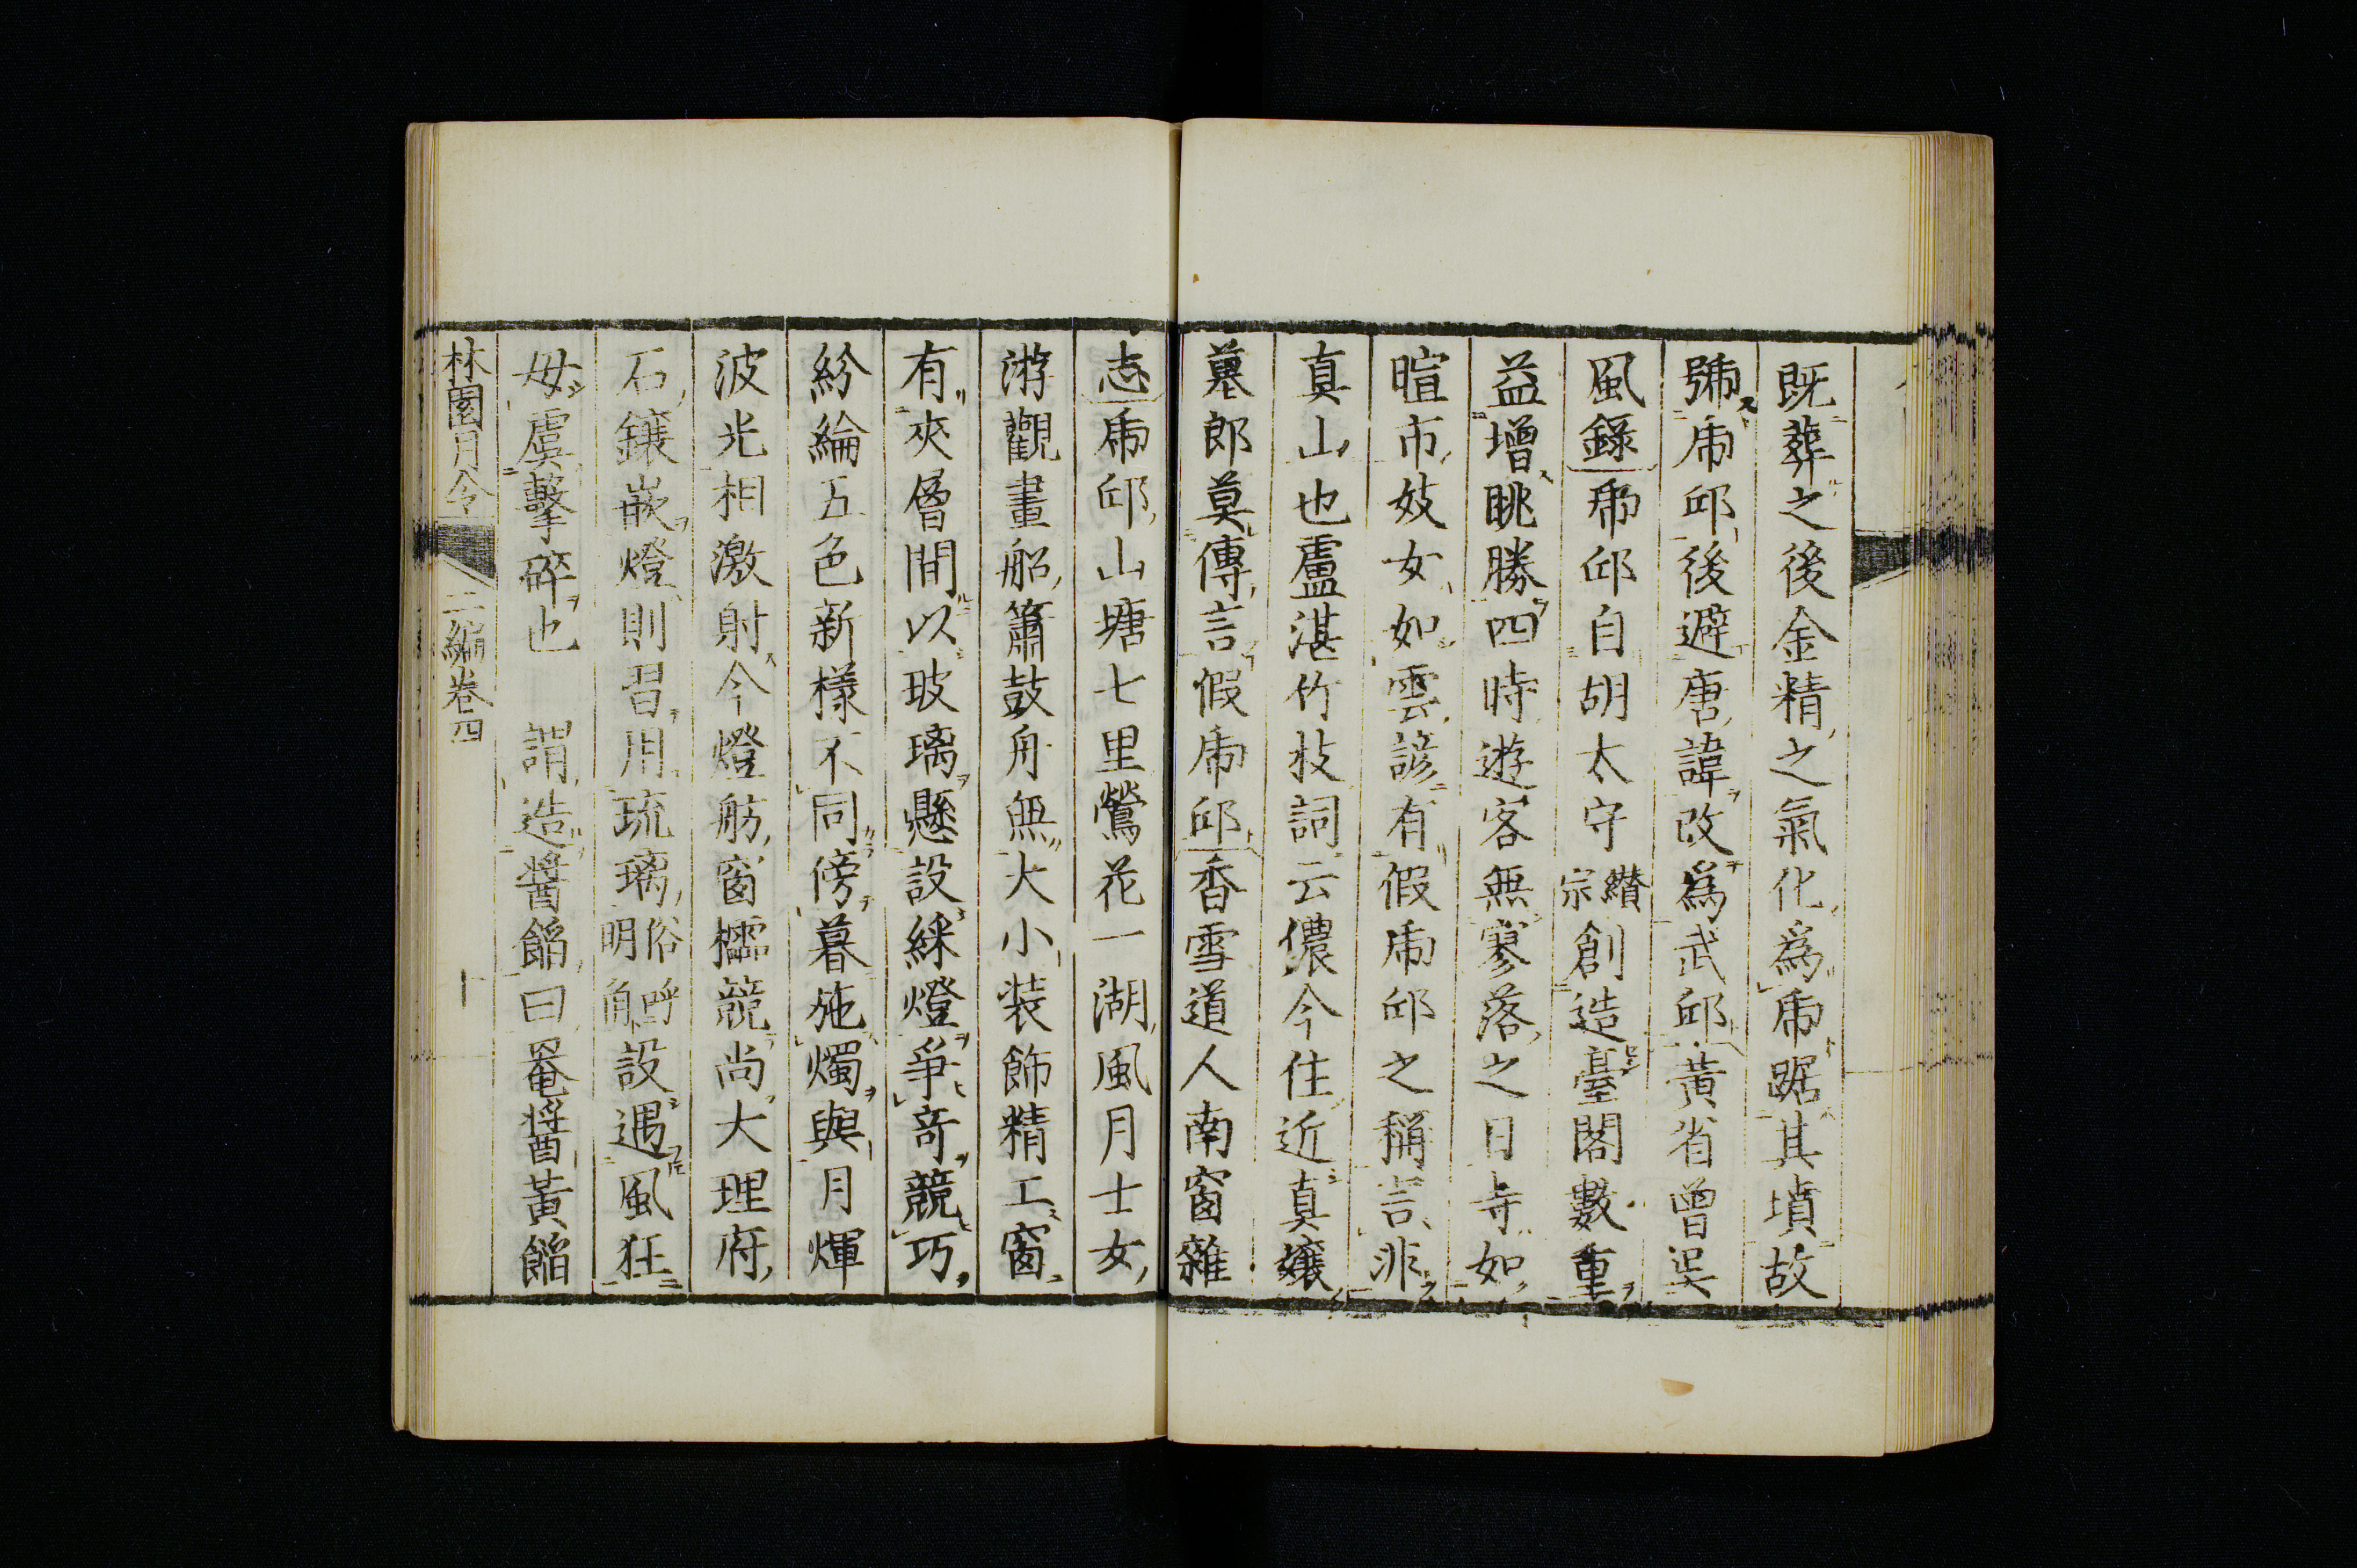 既葬之後金精之氣化爲虎踞其墳故
號虎邱後避唐諱改爲武邱黃省曾吳
風錄虎邱自胡太守纘宗創造臺閣數重
益增眺勝四時遊客無寥落之日寺如
喧市妓女如雲諺有假虎邱之稱言非
真山也盧湛竹枝詞云儂今住近真孃
墓郎莫傳言假虎邱香雪道人南窗雜
志虎邱山塘七里鶯花一湖風月士女
游觀畫船簫鼓舟無大小装飾精工窗
有夾層間以玻璃懸設綵燈爭竒競巧
紛綸五色新樣不同傍暮施燭與月輝
波光相激射今燈舫窗櫺競尚大理府
石鑲嵌燈則習用琉璃俗呼明角設遇風狂
毋虞擊碎也　謂造醬餡曰罨醬黃餡
林園月令　二編卷四　十